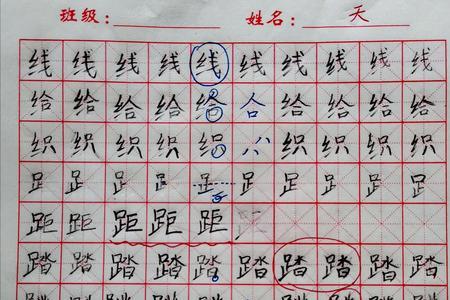 班级： 姓名： 天
线 线 线 线 线 线 线 线 线 线
给 给 给 给 给 合 给 给 给 给
织 织 织 织 织 织 织 织 织
⻊ ⻊ ⻊ ⻊ ⻊ ⻊ ⻊ ⻊ ⻊ ⻊
距 距 距 距 距
踏 踏 踏 踏 踏 踏 踏 踏 踏 踏